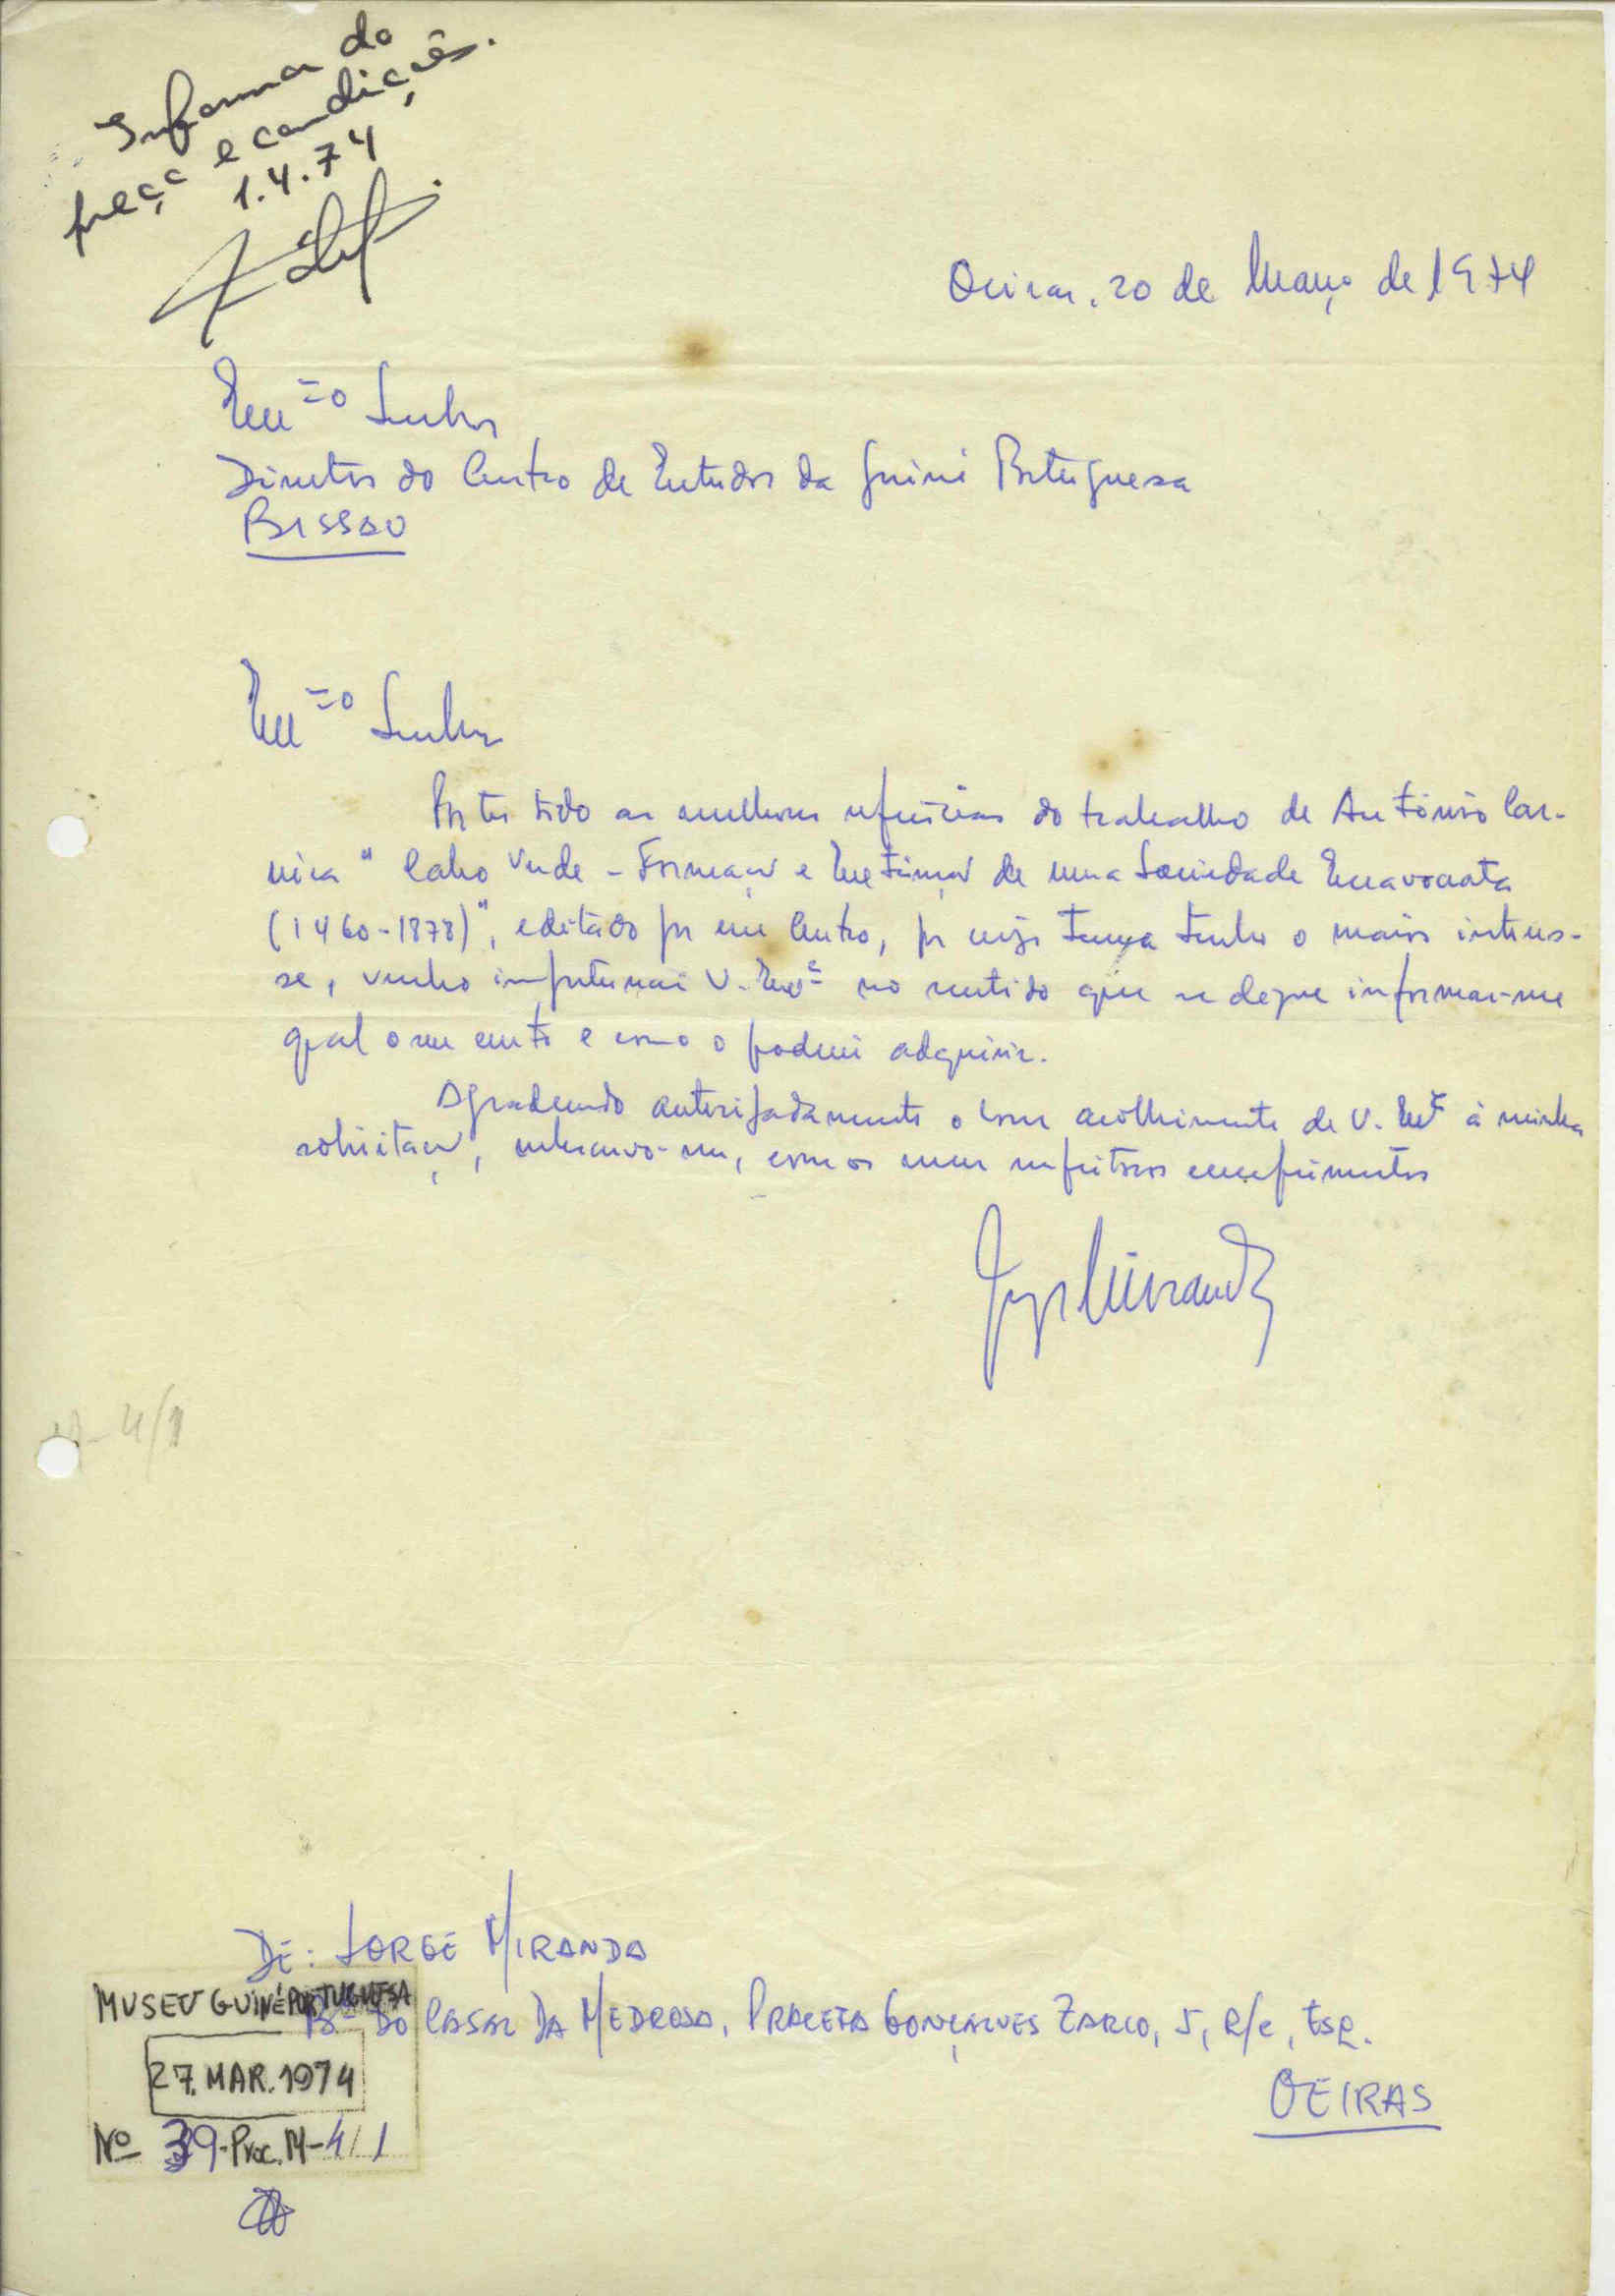 Informando
preço e condições.
1.4.74
Oeiras, 20 de Março de 1974
Exmº Senhor
Director do Centro de Estudos da Guiné Portuguesa
BISSAU
Exmº Senhor
Por ter tido as melhores referências do trabalho de António Car-
reira "Cabo Verde - Formação e Extinção de uma Sociedade Escravocrata
(1460-1878)", editado por esse Centro, por cujo tema tenho o maior interes-
se, venho importunar V. Exª no sentido que se digne informar-me
qual o seu custo e como o poderei adquirir.
Agradecendo antecipadamente o bom acolhimento de V. Exª à minha
solicitação, subscrevo-me, com os meus respeitosos cumprimentos
Jorge Miranda
M-4/1
DE: JORGE MIRANDA
Bº DO CASAL DA MEDROSA, PRACETA GONÇALVES ZARCO, 5, R/C, ESQ.
OEIRAS
MUSEU GUINÉ PORTUGUESA
27. MAR. 1974
Nº 39-Proc. M-4/1